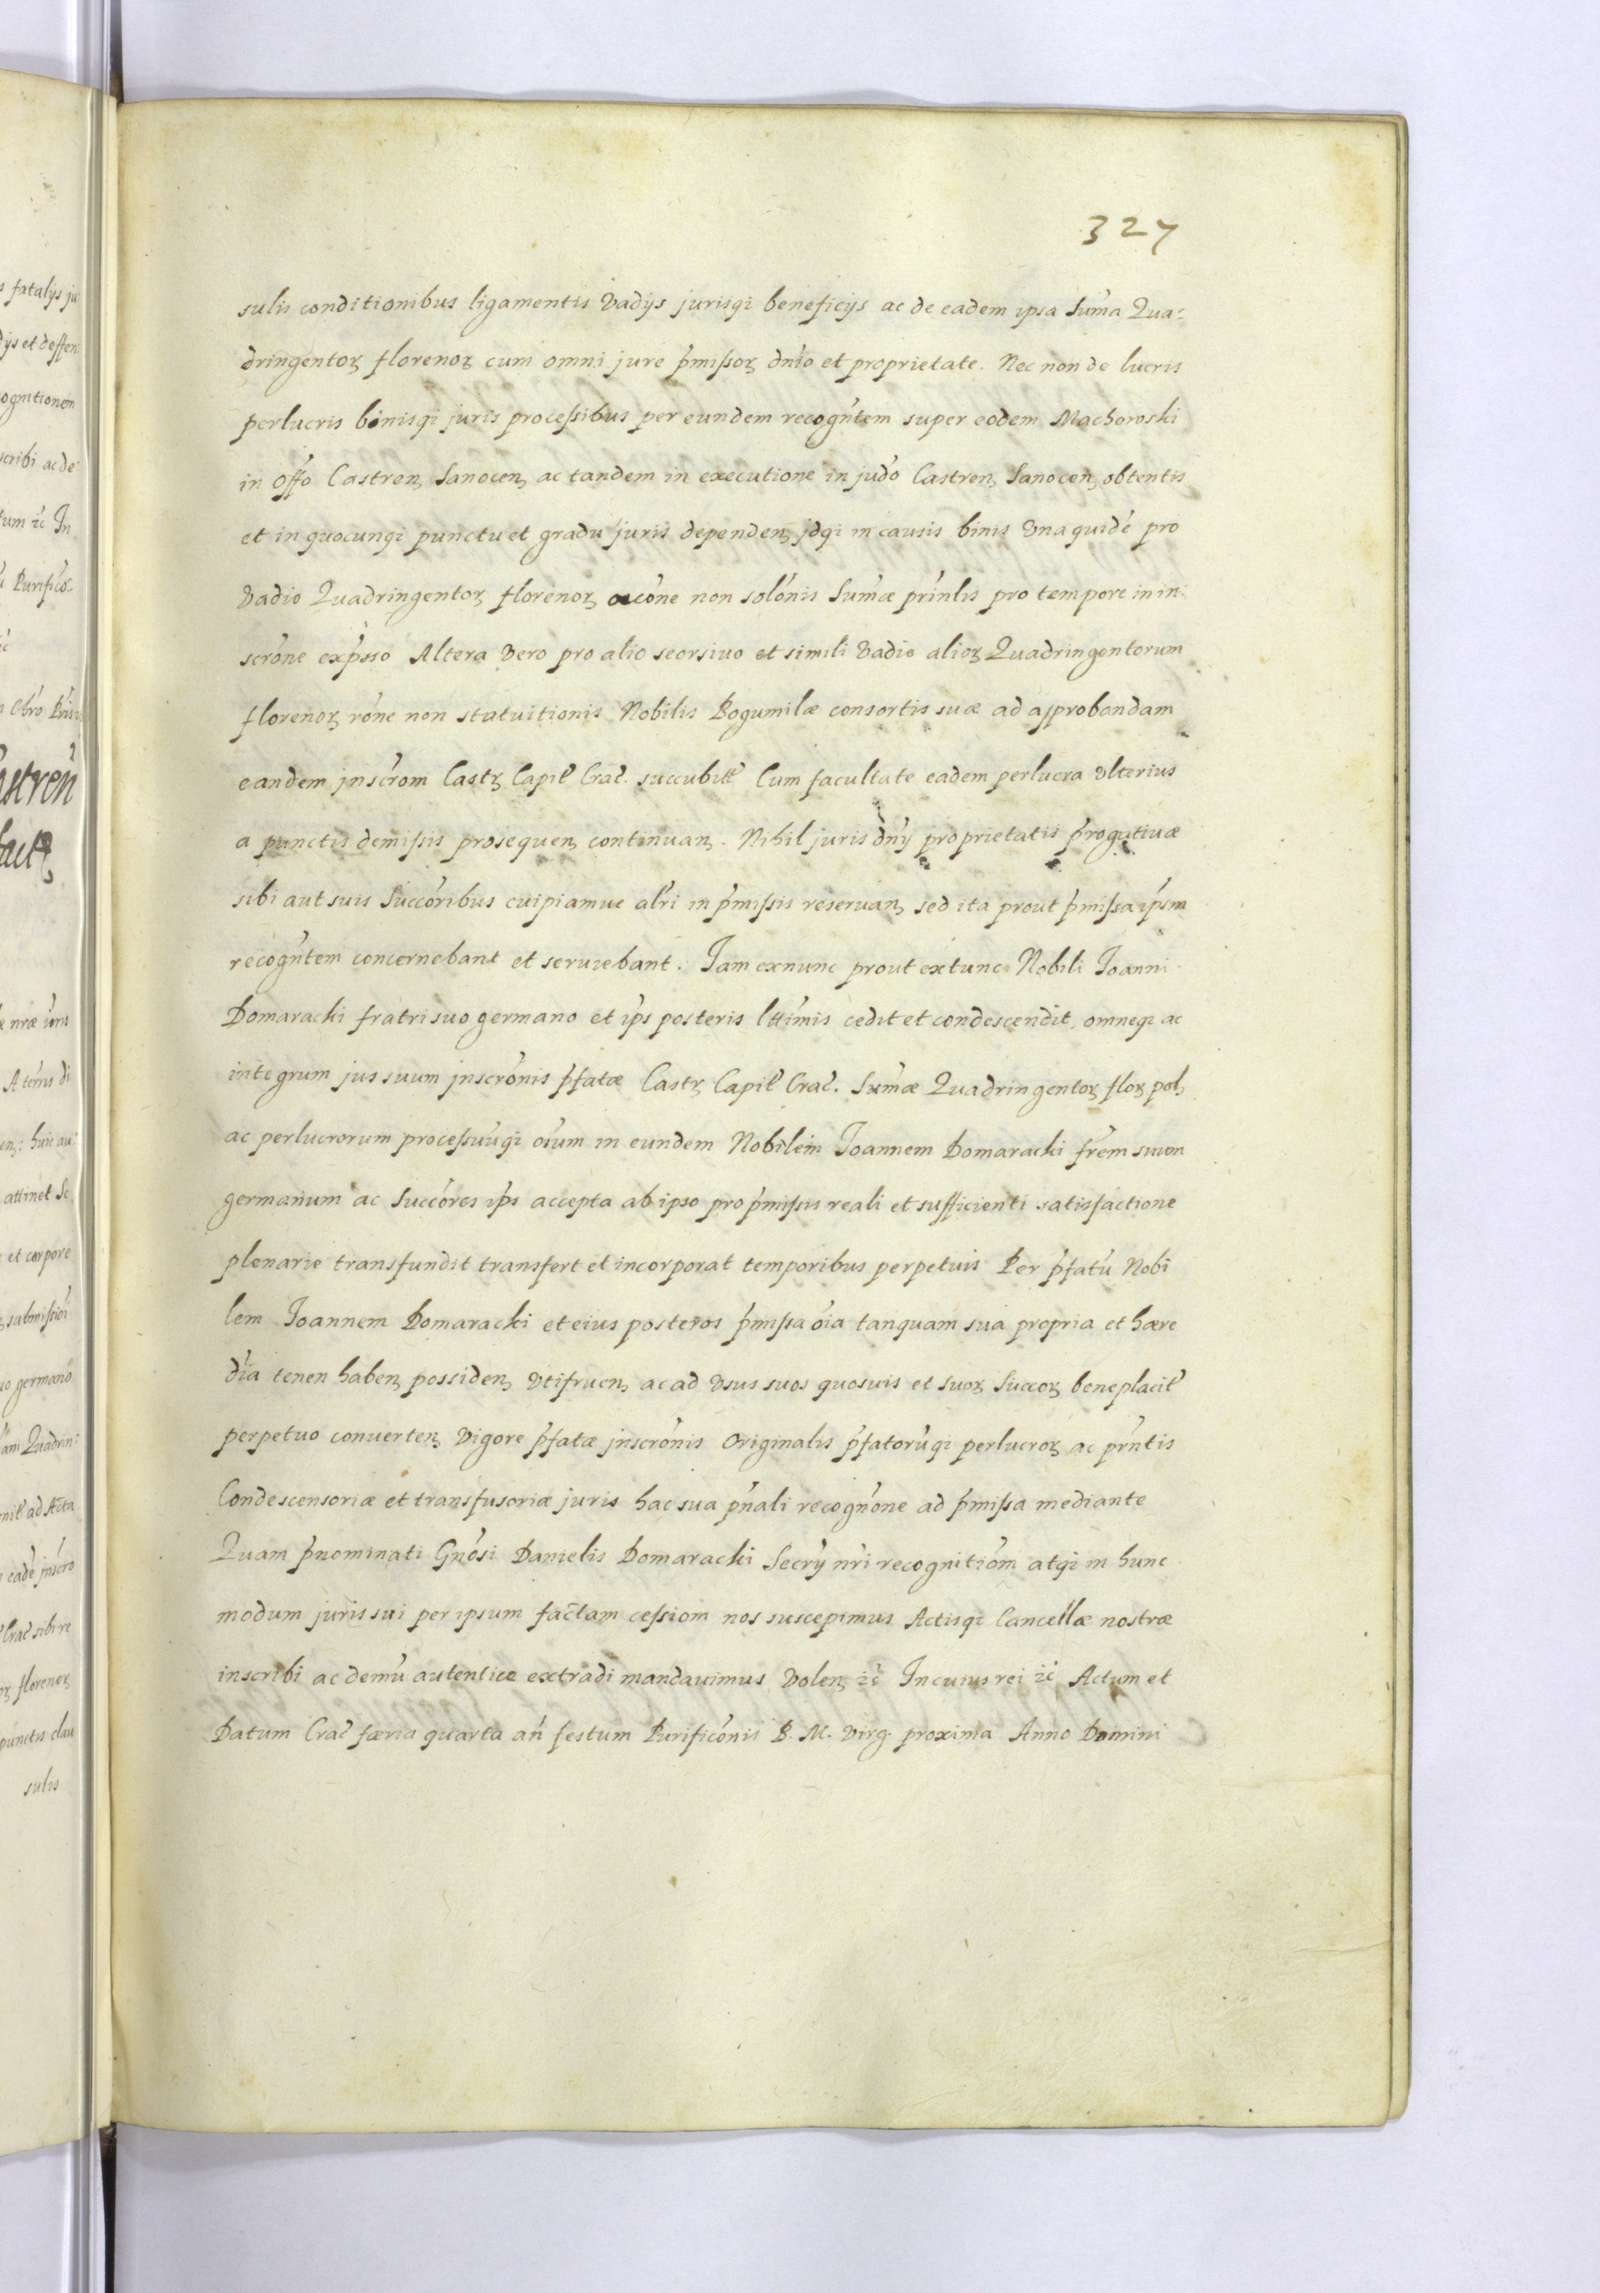 327
sulis conditionibus ligamentis Vadijs jurisqȝ beneficijs ac de eadem ipsa Sum̃a Qua-
dringentoꝝ florenoꝝ cum omni jure p̃mißoꝝ dn̄io et proprietate. Nec non de lucris
perlucris binisqȝ juris proceßibus per eundem recogñtem super eodem Machoroski
in Offo Castren Sanocen ac tandem in executione in judo Castren Sanocen obtentis
et in quocunqȝ punctu et gradu juris dependen idqȝ in causis binis Vna quidẽ pro
Vadio Quadringentoꝝ florenoꝝ non solõnis Sum̃æ prĩnlis pro tempore in in:
scrõne exp̃sso Altera Vero pro alio seorsiuo et simili Vadio alioꝝ Quadringentorum
florenoꝝ rõne non statuitionis Nobilis Bogumilæ consortis suæ ad approbandam
eandem inscrõm Castꝝ Capitl̃ Crac̃. succubitt̃ Cum facultate eadem perlucra Vlterius
a punctis demißis prosequen continuan. Nihil juris dñij proprietatis p̃rogatiuæ
sibi aut suis Succõribus cuipiamue alr̃i in p̃mißis reseruan, sed ita prout p̃mißa ip̃sm
recogñtem concernebant et seruiebant. Iam exnunc prout extunc Nobili Ioanni
Domaracki fratri suo germano et ip̃s posteris ltt̃imis cedit et condescendit, omneqȝ ac
integrum jus suum inscrõnis p̃fatæ Castꝝ Capitl̃ Crac̃. Sum̃æ Quadringentoꝝ floꝝ pol,
ac perlucrorum proceßuũqȝ oĩum in eundem Nobilem Ioannem Domaracki fr̃em suum
germanum ac Succõres ip̃s accepta ab ipso pro p̃mißis reali et sufficienti satisfactione
plenarie transfundit transfert et incorporat temporibus perpetuis Per p̃fatũ Nobi
lem Ioannem Domaracki et eius posteros p̃mißa oĩa tanquam sua propria et hære
dĩa tenen haben, possiden, Vtifruen, ac ad Vsus suos quosuis et suoꝝ Succoꝝ beneplacitl̃
perpetuo conuerten, Vigore p̃fatæ inscrõnis Originalis p̃fatorũqȝ perlucroꝝ ac pr̃ntis
Condescensoriæ et transfusoriæ juris hac sua p̃nali recogñone ad p̃mißa mediante
Quam p̃nominati Gnõsi Danielis Domaracki Secrȳ nr̃i recognitiõm atqȝ in hunc
modum juris sui per ipsum factam ceßiom nos suscepimus Actisqȝ Cancellæ nostræ
inscribi ac demũ autentice extradi mandauimus Volen, ⁊c̃ In cuius rei ⁊c̃ Actum et
Datum Crac̃ færia quarta añ festum Purificõnis B. M. Virg. proxima Anno Domini